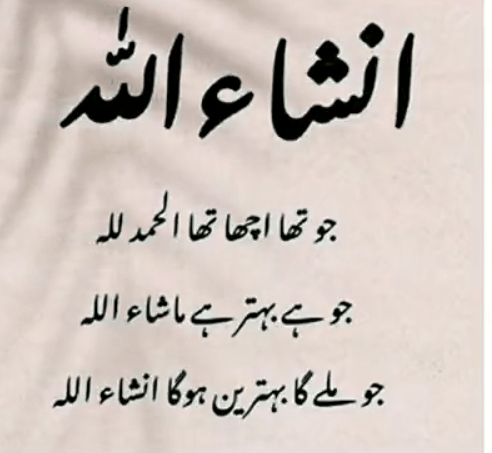 انشاء اللہ
جو تھا اچھا تھا الحمد للہ
جو ہے بہتر ہے ماشاء اللہ
جو ملے گا بہترین ہوگا انشاء اللہ